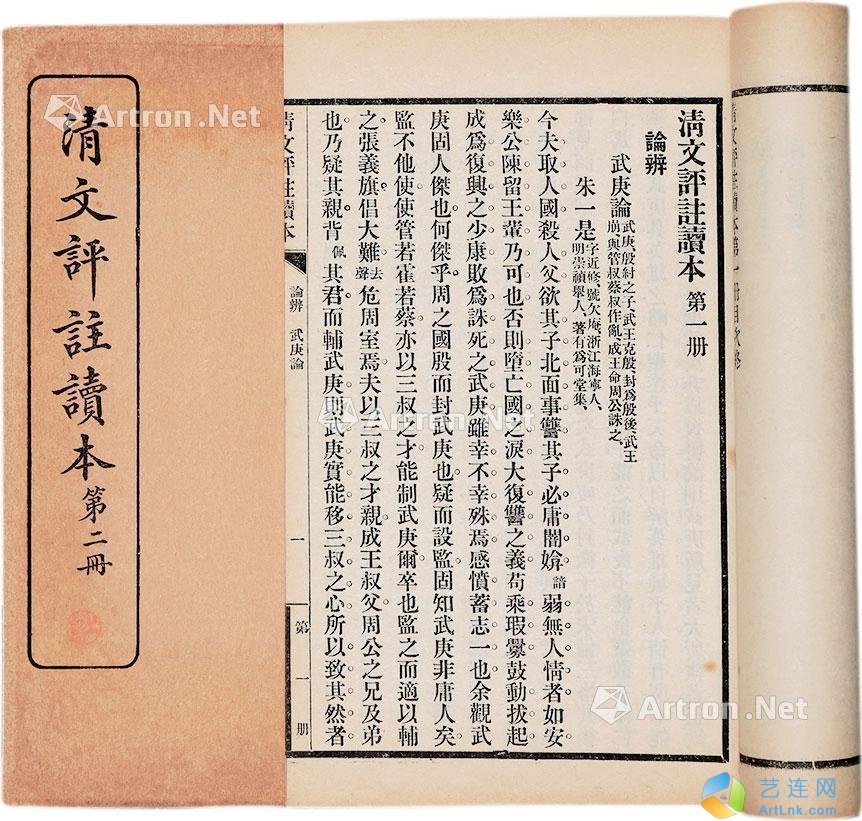 清文評註讀本 第一册
論辨
武庚論 武庚殷紂之子、武王克殷、封爲殷後、武王
崩與管叔蔡叔作亂、成王命周公誅之、
朱一是 字近修、號欠庵、浙江海寧人、
明崇禎舉人、著有爲可堂集、
今夫取人國殺人父欲其子北面事讐其子必庸闇媕諳弱無人情者如安
樂公陳留王輩乃可也否則墮亡國之淚大復讐之義苟乘瑕釁鼓動拔起
成爲復興之少康敗爲誅死之武庚雖幸不幸殊焉感憤蓄志一也余觀武
庚固人傑也何傑乎周之國殷而封武庚也疑而設監固知武庚非庸人矣
監不他使使管若霍若蔡亦以三叔之才能制武庚爾卒也監之而適以輔
之張義旗倡大難去聲危周室焉夫以三叔之才親成王叔父周公之兄及弟
也乃疑其親背佩其君而輔武庚則武庚實能移三叔之心所以致其然者
清文評註讀本
論辨 武庚論
一
第一册
清文評註讀本 第二冊
清文評註讀本第一册目次終
Artron.Net
Artron.Net
Artron.Net
Artron.Net
Artron.Net
艺连网
ArtLnk.com